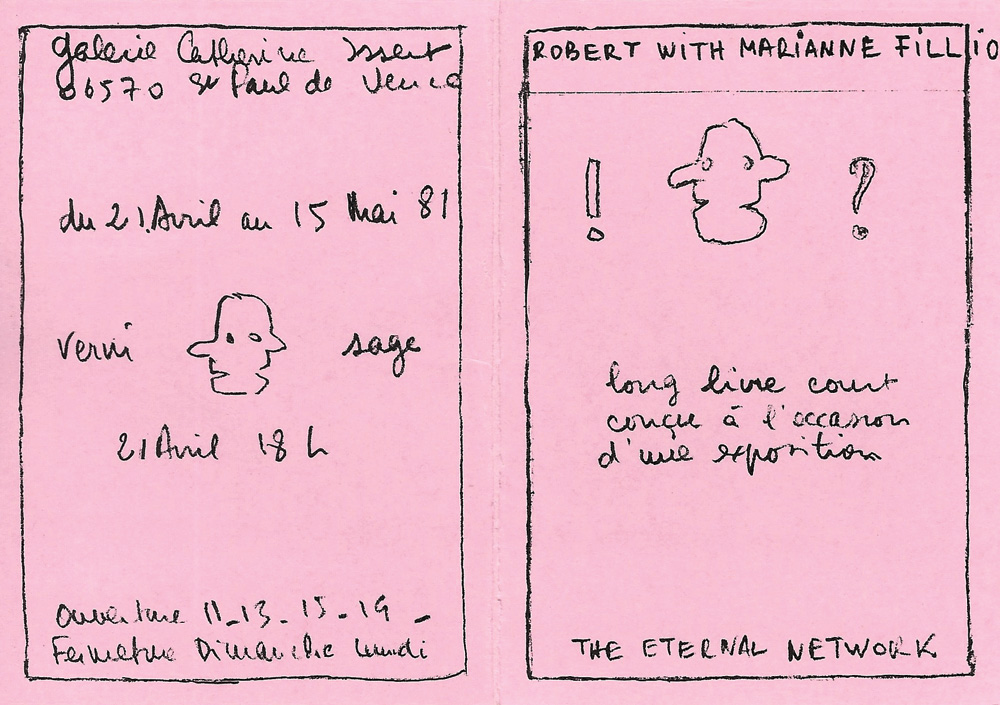 galerie Catherine Issert
06570 St Paul de Vence
du 21 Avril au 15 Mai 81
verni sage
21 Avril 18 h
Ouverture 11-13-15-19-
Fermeture Dimanche lundi
ROBERT WITH MARIANNE FILLIO
! ?
long livre court
conçu à l'occasion
d'une exposition
THE ETERNAL NETWORK